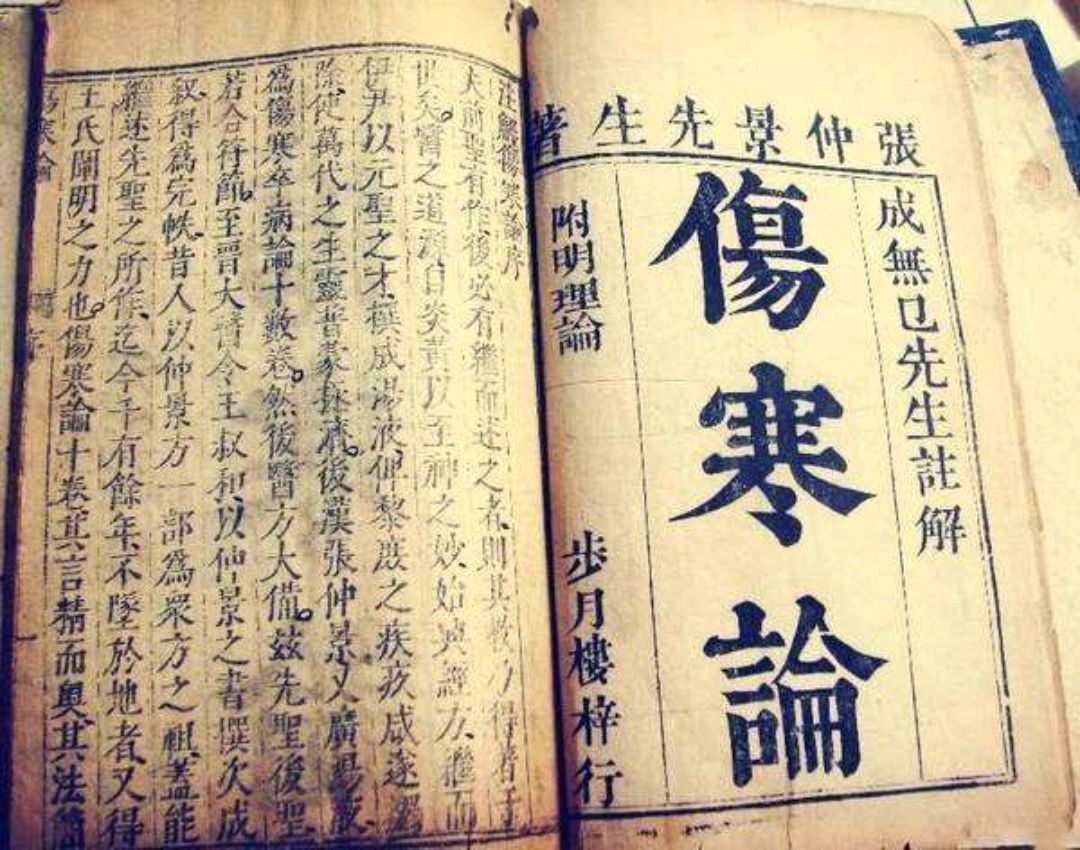 張仲景先生著
成無已先生註解
傷寒論
附明理論
步月樓梓行
註解傷寒論序
夫前聖有作後必有繼而述之者、則其教乃得著于
世矣。醫之道源自炎黃以至神之妙始興經方、繼而
伊尹以元聖之才、撰成湯液、俾黎庶之疾疢咸遂蠲
除、使萬代之生靈普蒙拯濟。後漢張仲景又廣湯液
爲傷寒卒病論十數卷。然後醫方大備。兹先聖後聖
若合符節。至晉大醫令王叔和、以仲景之書撰次成
叙、得爲完帙、昔人以仲景方一部爲眾方之祖、蓋能
繼述先聖之所作、迄今千有餘年、不墜於地者、又得
王氏闡明之力也。傷寒論十卷、其言精而奧、其法簡
傷寒論 序 一